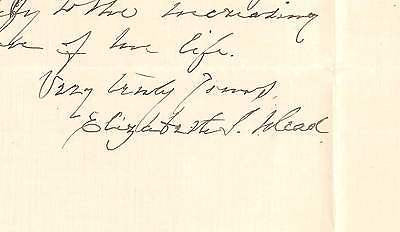 to the increasing
of one life.
Very truly Yours,
Elizabeth S. Mead.